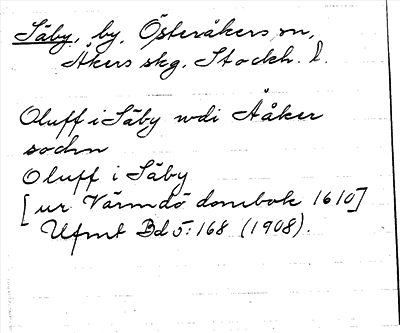 Säby, by, Österåkers sn,
Åkers skg, Stockh. l.
Oluff i Säby wdi Ååker
sochn
Oluff i Säby
[ur Värmdö dombok 1610]
Ufmt Bd 5:168 (1908).